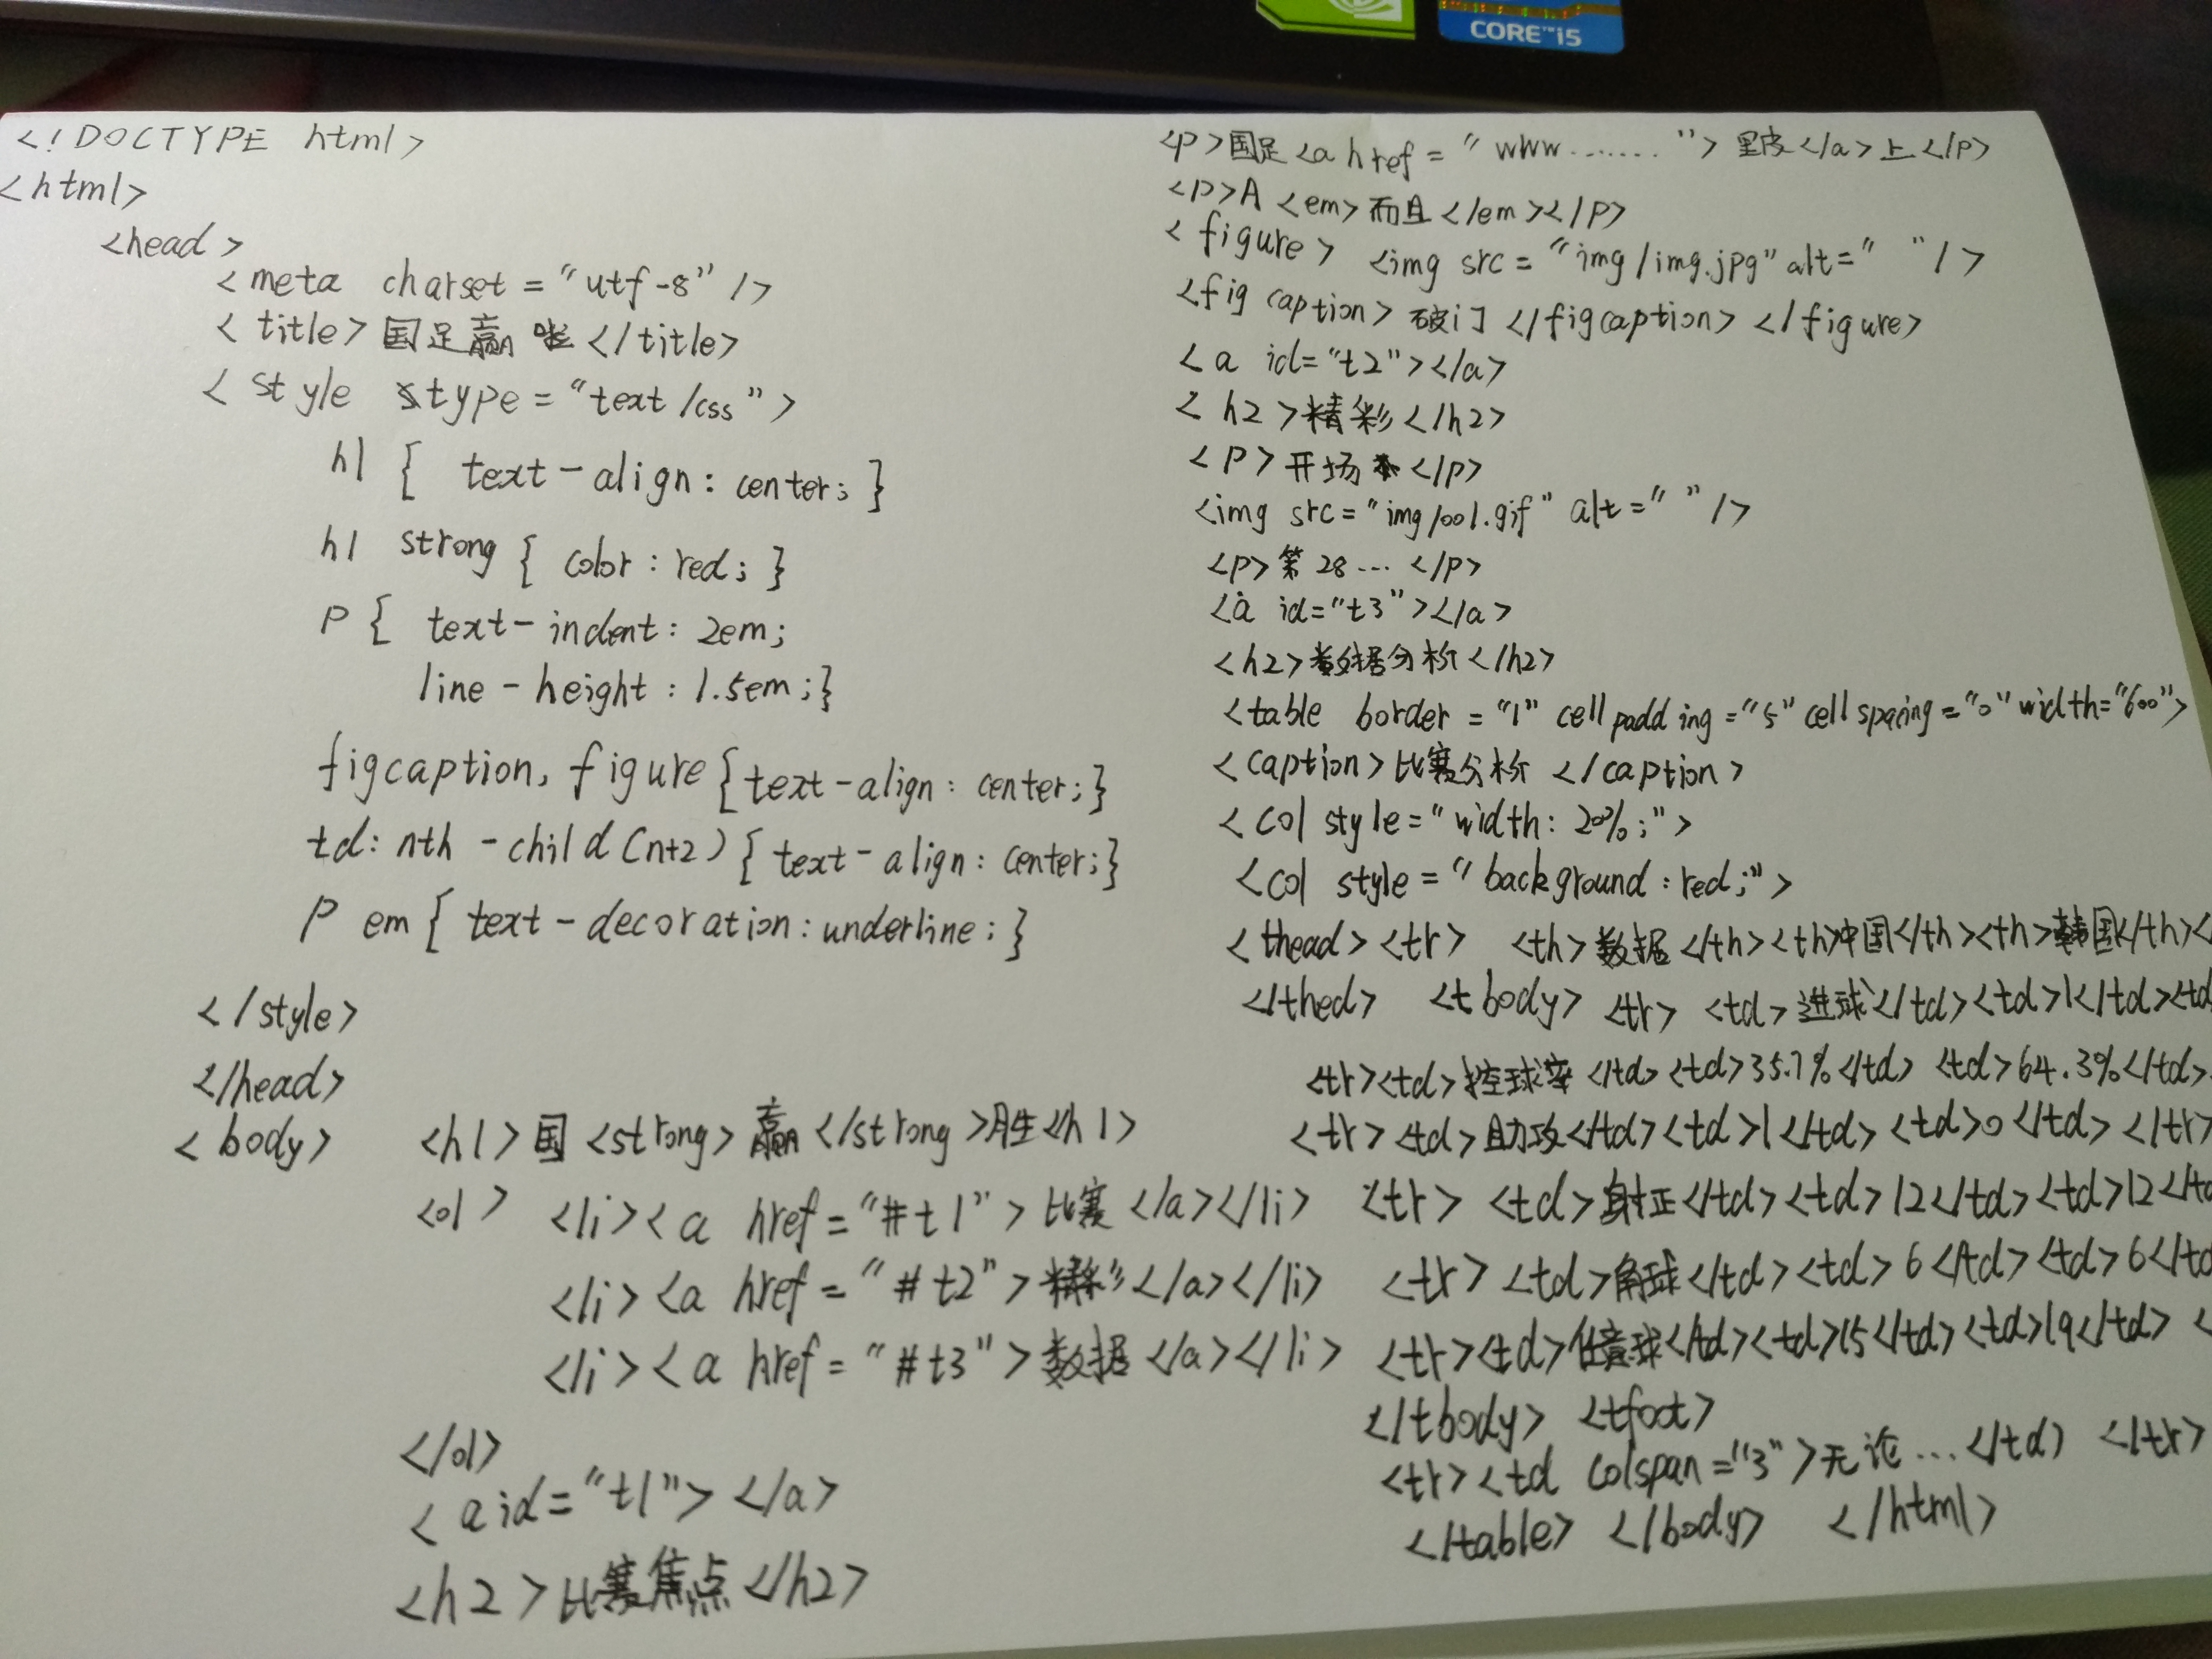 CORE™i5
<!DOCTYPE html>
<html>
<head>
<meta charset="utf-8"/>
<title>国足赢啦</title>
<style type="text/css">
h1 { text-align: center; }
h1 strong { color: red; }
P { text-indent: 2em;
line-height: 1.5em;}
figcaption, figure {text-align: center;}
td: nth-child(n+2) {text-align: center;}
P em { text-decoration: underline; }
</style>
</head>
<body> <h1>国<strong>赢</strong>胜<h1>
<ol> <li><a href="#t1">比赛</a></li>
<li><a href="#t2">精彩</a></li>
<li><a href="#t3">数据</a></li>
</ol>
<a id="t1"></a>
<h2>比赛焦点</h2>
<P>国足<a href="www.......">里皮</a>上</P>
<P>A<em>而且</em></P>
<figure> <img src="img/img.jpg" alt=" "/>
<figcaption>破门</figcaption></figure>
<a id="t2"></a>
<h2>精彩</h2>
<P>开场</P>
<img src="img/001.gif" alt=" "/>
<P>第28...</P>
<a id="t3"></a>
<h2>数据分析</h2>
<table border="1" cellpadding="5" cellspacing="0" width="600">
<caption>比赛分析</caption>
<col style="width: 20%;">
<col style="background: red;">
<thead><tr> <th>数据</th><th>中国</th><th>韩国</th><
</thed> <tbody> <tr> <td>进球</td><td>1</td><td
<tr><td>控球率</td><td>35.7%</td> <td>64.3%</td>
<tr><td>助攻</td><td>1</td><td>0</td></tr>
<tr> <td>射正</td><td>12</td><td>12</td
<tr> <td>角球</td><td>6</td><td>6</td
<tr><td>任意球</td><td>15</td><td>19</td> <
</tbody> <tfoot>
<tr><td colspan="3">无论...</td) </tr>
</table> </body> </html>